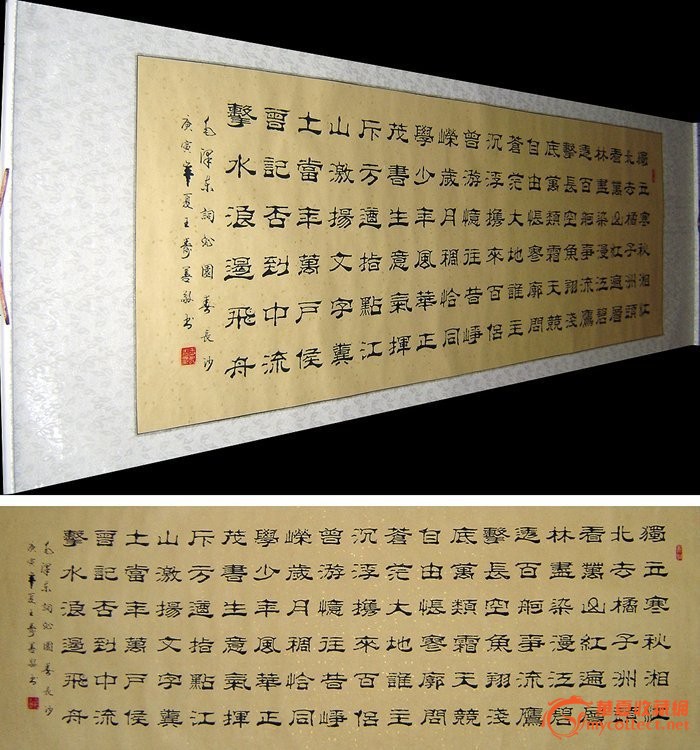 獨立寒秋湘江
北去橘子洲頭
看萬山紅遍層
林盡染漫江碧
透百舸爭流鷹
擊長空魚翔淺
底萬類霜天競
自由悵寥廓問
蒼茫大地誰主
沉浮攜來百侶
曾游憶往昔崢
嶸歲月稠恰同
學少年風華正
茂書生意氣揮
斥方遒指點江
山激揚文字糞
土當年萬戶侯
曾記否到中流
擊水浪遏飛舟
毛澤東詞沁園春長沙
庚寅年夏王壽善书
獨立寒秋湘江
北去橘子洲頭
看萬山紅遍層
林盡染漫江碧
透百舸爭流鷹
擊長空魚翔淺
底萬類霜天競
自由悵寥廓問
蒼茫大地誰主
沉浮攜來百侶
曾游憶往昔崢
嶸歲月稠恰同
學少年風華正
茂書生意氣揮
斥方遒指點江
山激揚文字糞
土當年萬戶侯
曾記否到中流
擊水浪遏飛舟
毛澤東詞沁園春長沙
庚寅年夏王壽善书
华夏收藏网
mycollect.net